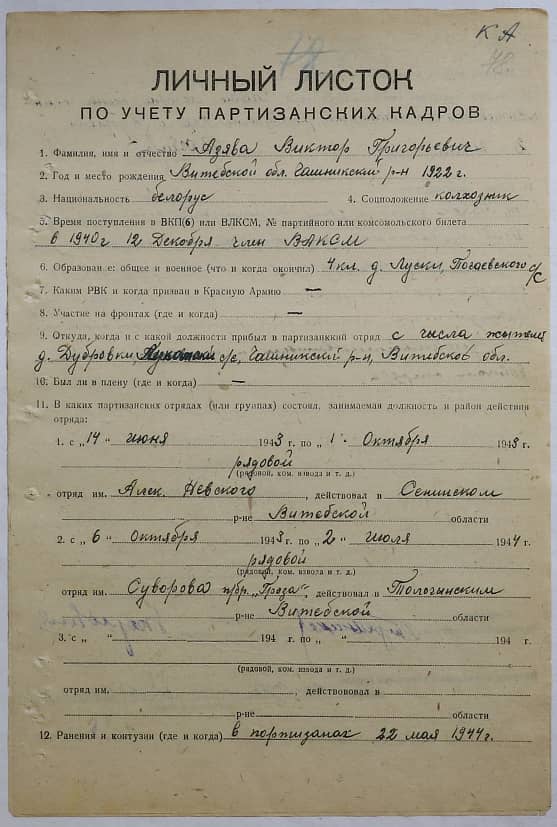 КА
78.
ЛИЧНЫЙ ЛИСТОК
ПО УЧЕТУ ПАРТИЗАНСКИХ КАДРОВ
1. Фамилия, имя и отчество Адява Виктор Григорьевич
2. Год и место рождения Витебской обл. Чашникский р-н 1922 г.
3. Национальность белорус 4. Соцположение колхозник
5. Время поступления в ВКП(б) или ВЛКСМ, № партийного или комсомольского билета
в 1940г 12 Декабря член ВЛКСМ
6. Образован е: общее и военное (что и когда окончил) 4 кл. д. Луски, с/с
7. Каким РВК и когда призван в Красную Армию —
8. Участие на фронтах (где и когда) —
9. Откуда, когда и с какой должности прибыл в партизанккий отряд с числа жителей
д. Дубровки, с/с, Чашникский р-н, Витебской обл.
10. Был ли в плену (где и когда) —
11. В каких партизанских отрядах (или группах) состоял, занимаемая должность и район действия
отряда:
1. с „ 14 " июня 1943 г. по „ 1 " Октября 1943 г.
рядовой
(рядовой, ком. взвода и т. д.)
отряд им. Алек. Невского , действовал в Сенинском
р-не Витебской области
2. с „ 6 " октября 1943 г. по „ 2 " июля 1944 г.
рядовой
(рядовой, ком. взвода и т. д.)
отряд им. Суворова п/бр. „Гроза" , действовал в Толочинским
р-не Витебской области
3. с „ " 194 г. по „ " 194 г.
(рядовой, ком. взвода и т. д.)
отряд им. , действововал в
р-не области
12. Ранения и контузии (где и когда) в портизанах 22 мая 1944г.